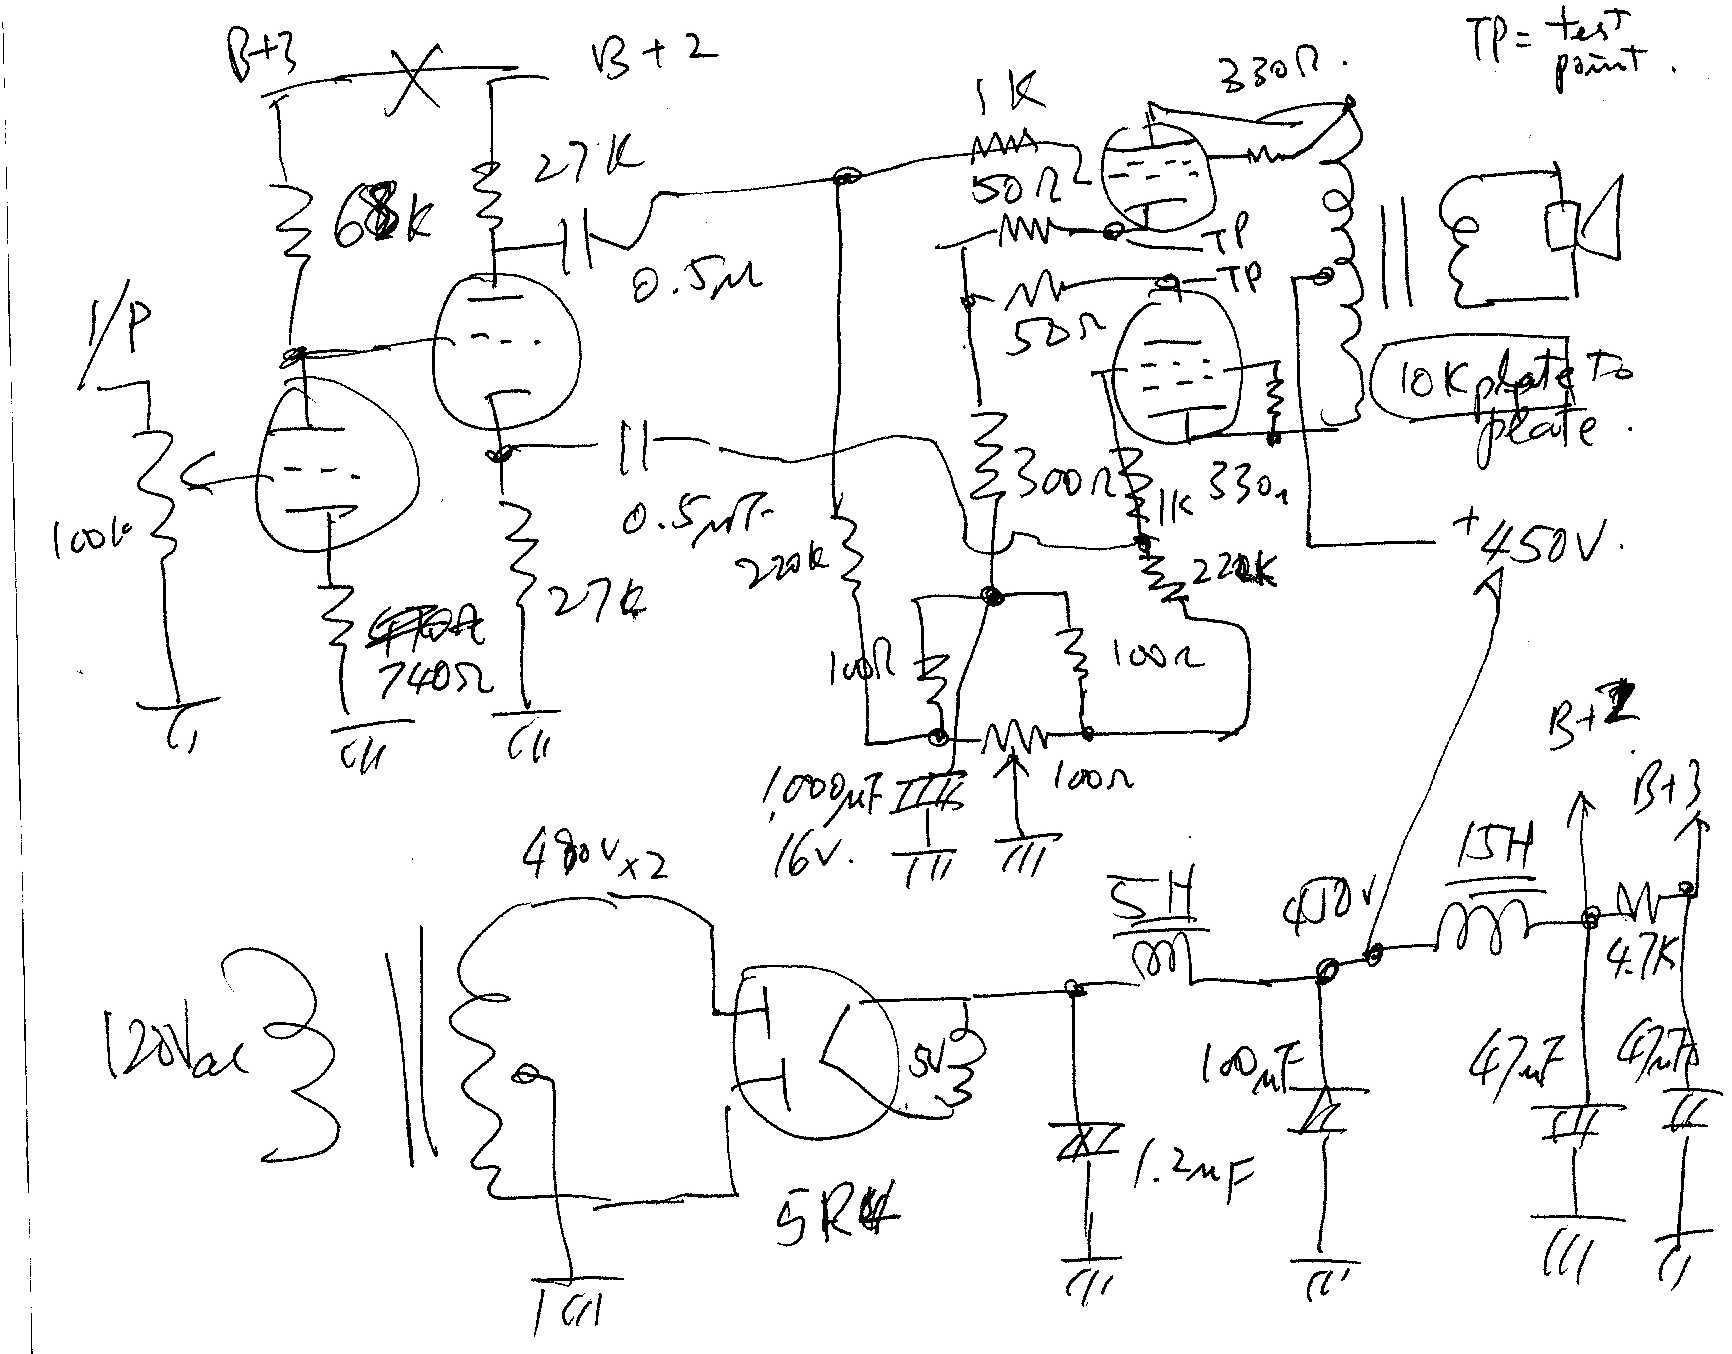 B+3
B+2
TP = test
point.
330Ω.
1K
27K
68K
50Ω
TP
TP
0.5μ
I/P
50Ω
10K plate To
plate.
100K
300Ω
330Ω
1K
0.5μF
+450V.
220K
220K
27K
740Ω
100Ω
100Ω
B+2
1,000μF
16V.
100Ω
B+3
480V x2
15H
5H
450V
4.7K
120Vac
5V
100μF
47μF
47μF
1.2μF
5R4